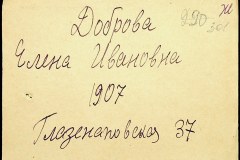 Доброва
Елена Ивановна
1907
Глазенаповская 37